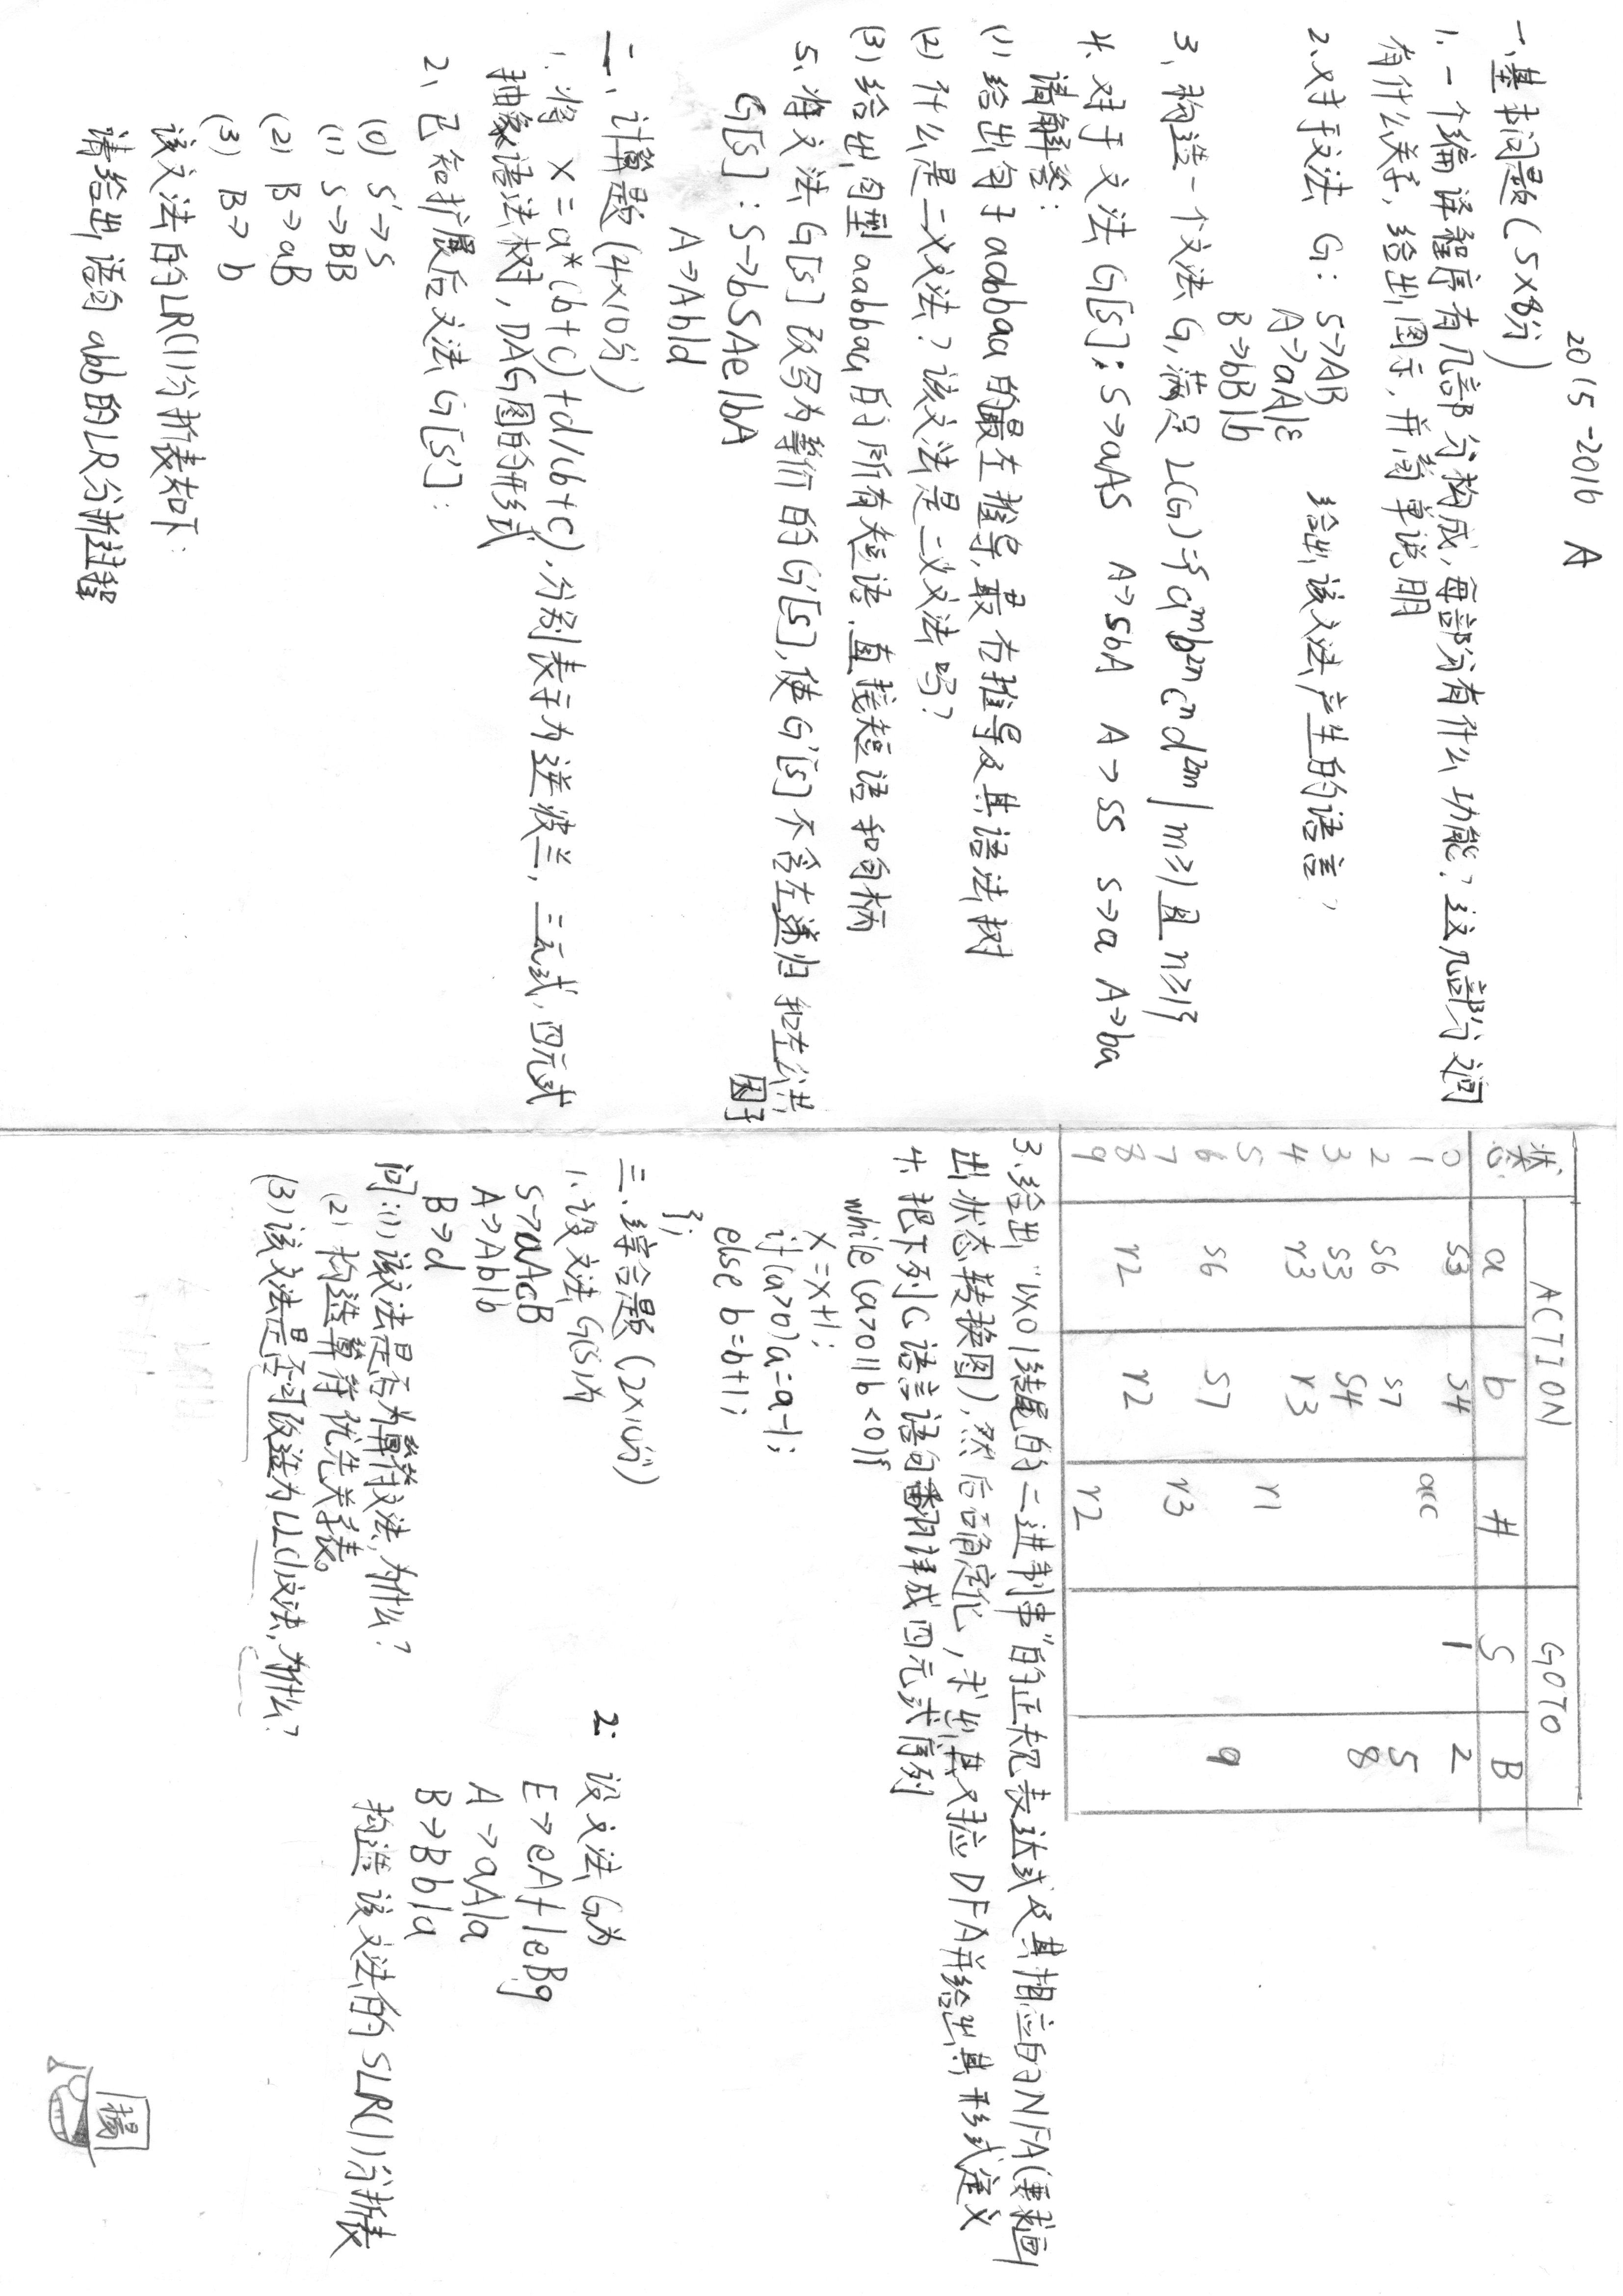 2015-2016 A
一、基本问题(5×8分)
1、一个编译程序有几部分构成,每部分有什么功能?这几部分之间
有什么关系,给出图示,并简单说明
2、对于文法 G: S→AB 给出该文法产生的语言?
A→aA|ε
B→bB|b
3、构造一个文法G,满足L(G)={a^m b^2n c^n d^2m | m≥1且n≥1}
4、对于文法G[S]: S→aAS A→SbA A→SS S→a A→ba
请解答:
(1) 给出句子aabbaa的最左推导,最右推导及其语法树
(2) 什么是二义文法?该文法是二义文法吗?
(3) 给出句型aabbaa的所有短语、直接短语和句柄
5、将文法G[S]改写为等价的G'[S],使G'[S]不含左递归和左公共
因子
G[S]: S→bSAe|bA
A→Ab|d
二、计算题(4×10分)
1.将 x=a*(b+c)+d/(b+c),分别表示为逆波兰,三元式,四元式
抽象语法树,DAG图的形式
2、已知扩展后文法G[S']:
(0) S'→S
(1) S→BB
(2) B→aB
(3) B→b
该文法的LR(1)分析表如下:
请给出语句abb的LR分析过程
状态 ACTION GOTO
a b # S B
0 S3 S4 1 2
1 acc
2 S6 S7 5
3 S3 S4 8
4 r3 r3
5 r1
6 S6 S7 9
7 r3
8 r2 r2
9 r2
3.给出"以x01结尾的二进制串"的正规表达式及其相应的NFA(要求画
出状态转换图),然后确定化,求出其对应DFA并给出其形式定义
4.把下列C语言语句翻译成四元式序列
while (a>0||b<0){
x=x+1;
if(a>0)a=a-1;
else b=b+1;
};
三、综合题(2×10分)
1、设文法G(S)为
S→aAcB
A→Ab|b
B→d
问:(1)该文法是否为算符文法,为什么?
(2)构造算符优先关系表。
(3)该文法是否可改造为LL(1)文法,为什么?
2: 设文法G为
E→eAf|eBg
A→aA|a
B→Bb|a
构造该文法的SLR(1)分析表
揚